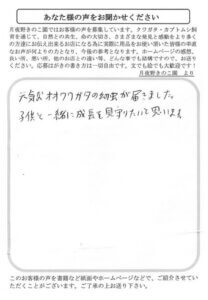 あなた様の声をお聞かせください
月夜野きのこ園ではお客様の声を募集しています。クワガタ・カブトムシ飼
育を通じて、自然との共生、命の大切さ、さまざまな発見と感動をより多く
の方達にお伝え出来るお店になる為に実際に用品をお使い頂いた皆様の率直
なお声が何よりの力となり、今後の参考となります。ホームページの感想、
良い所、悪い所、他のお店との違い等、どんな事でも結構ですので、お送りく
ださい。応募はがきの書き方は一切自由です。文でも絵でも大歓迎です！
月夜野きのこ園 より
元気なオオクワガタの幼虫が届きました。
子供と一緒に成長を見守りたいと思います。
このお客様の声を書籍など紙面やホームページなどで、ご紹介させてい
ただくことがございます。ご了承の上お送り下さい。